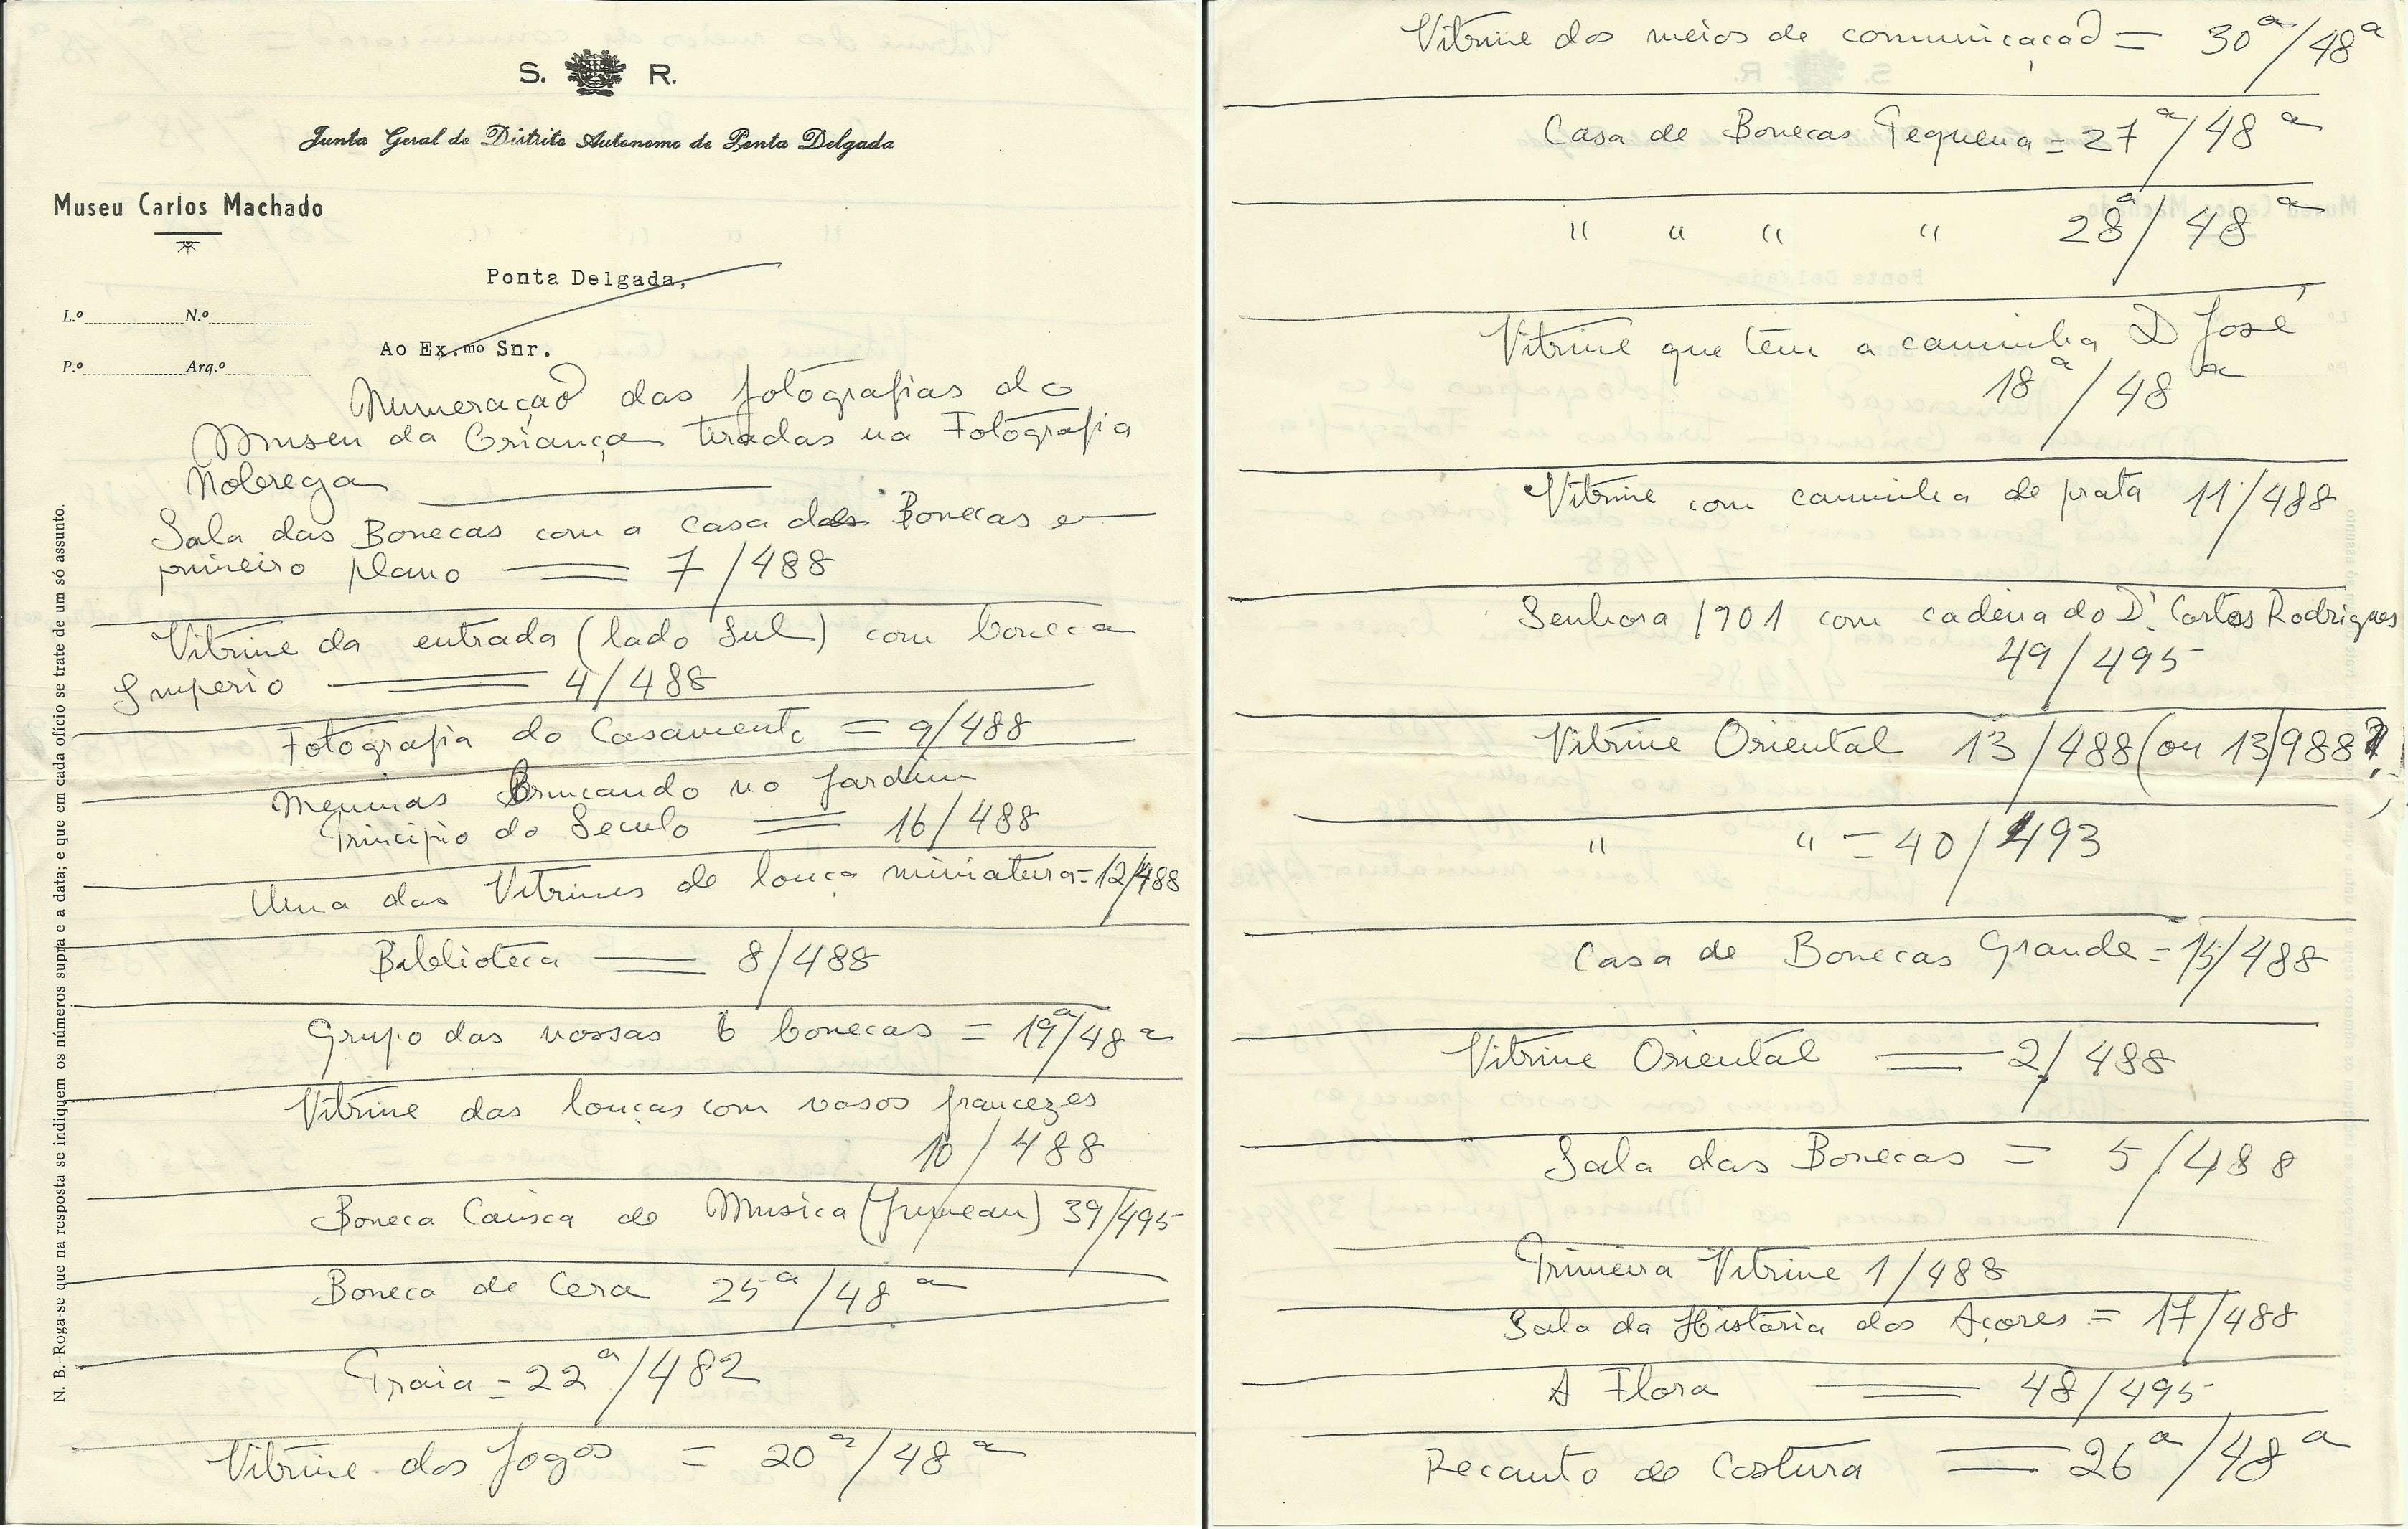 S. R.
Junta Geral do Distrito Autonomo de Ponta Delgada
Museu Carlos Machado
Ponta Delgada,
L.º N.º
Ao Ex.mo Snr.
P.º Arq.º
Numeração das fotografias do
Museu da Criança tiradas na Fotografia
Nobrega
Sala das Bonecas com a casa das Bonecas em
primeiro plano = 7/488
Vitrine da entrada (lado Sul) com boneca
Imperio = 4/488
Fotografia do Casamento = 9/488
Meninas Brincando no Jardim
Principio do Seculo = 16/488
Uma das Vitrines de louça miniatura = 12/488
Biblioteca = 8/488
Grupo das nossas 6 bonecas = 19ª/48ª
Vitrine das louças com vasos francezes
10/488
Boneca Caisca de Musica (Jumeau) 39/495
Boneca de Cera 25ª/48ª
Praia = 22ª/482
Vitrine dos Jogos = 20ª/48ª
N. B.-Roga-se que na resposta se indiquem os números supra e a data; e que em cada ofício se trate de um só assunto.
Vitrine dos meios de comunicação = 30ª/48ª
Casa de Bonecas Pequena = 27ª/48ª
" " " " 28ª/48ª
Vitrine que têm a caminha D José
18ª/48ª
Vitrine com caminha de prata 11/488
Senhora 1901 com cadeira do Dr. Carlos Rodrigues
49/495
Vitrine Oriental 13/488 (ou 13/988?)
" " = 40/493
Casa de Bonecas Grande = 15/488
Vitrine Oriental = 2/488
Sala das Bonecas = 5/488
Primeira Vitrine 1/488
Sala da Historia dos Açores = 17/488
A Flora = 48/495
Recanto de Costura = 26ª/48ª